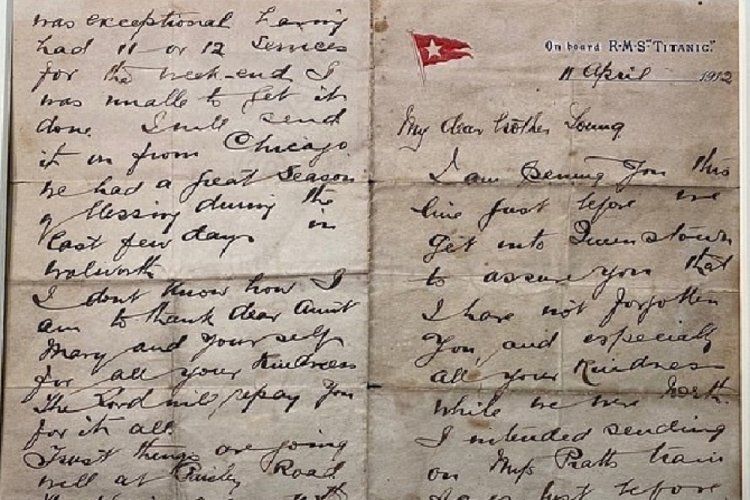 On board R·M·S "TITANIC."
11 April 1912
My dear brother Young
I am penning you this
line just before we
get into Queenstown
to assure you that
I have not forgotten
you, and especially
all your kindness
while we were North.
I intended sending
on Miss Pratts train
just before
was exceptional Having
had 11 or 12 Services
for the week-end I
was unable to get it
done. I will send
it on from Chicago
We had a great Season
of blessing during the
last few days in
Walworth
I dont know how I
am to thank dear Aunt
Mary and yourself
for all your Kindness
The Lord will repay you
for it all.
Trust things are going
well at Paisley Road